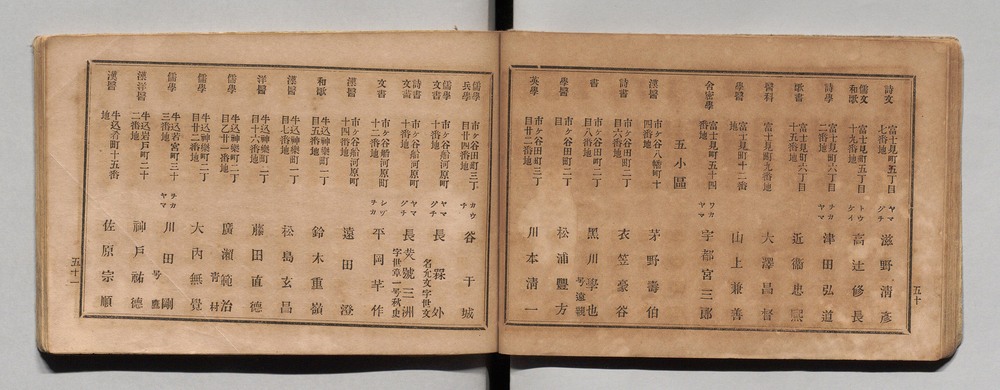 五十
詩文 富士見町五丁目七番地 ヤマグチ 滋野清彦
儒文和歌 富士見町五丁目十九番地 トウタイ 高辻修長
詩學 富士見町六丁目二番地 ヤマチカ 津田弘道
歌書 富士見町六丁目十五番地 近衞忠熈
醫科 富士見町九番地 大澤昌督
學醫 富士見町十二番地 山上兼善
舍密學 富士見町五十四番地 ワカヤマ 宇都宮三郎
五小區
漢醫 市ケ谷八幡町十四番地 茅野壽伯
詩書 市ケ谷田町二丁目六番地 衣笠豪谷
書 市ケ谷田町二丁目八番地 黑川學也
學醫 市ケ谷田町二丁目 松浦豐方
英學 市ケ谷田町二丁目廿二番地 川本清一
儒學兵學 市ケ谷田町三丁目廿四番地 カウチ 谷干城
儒學文書 市ケ谷船河原町十番地 ヤマグチ 長炗外
名允文字世文
詩書文書 市ケ谷船河原町十番地 ヤマグチ 長炗號三洲
字世章一号秋史
文書 市ケ谷船河原町十二番地 シヅヲカ 平岡芋作
漢醫 市ケ谷船河原町十四番地 遠田澄
和歌 牛込神樂町一丁目五番地 鈴木重嶺
漢醫 牛込神樂町一丁目七番地 松島玄昌
洋醫 牛込神樂町一丁目十六番地 藤田直德
儒學 牛込神樂町二丁目乙廿一番地 廣瀨範治
青村
儒學 牛込神樂町二丁目廿二番地 大內無覺
儒學 牛込若宮町三十三番地 ヲカヤマ 川田剛
漢洋醫 牛込岩戸町二十二番地 神戸祐德
漢醫 牛込肴町十五番地 佐原宗順
五十一